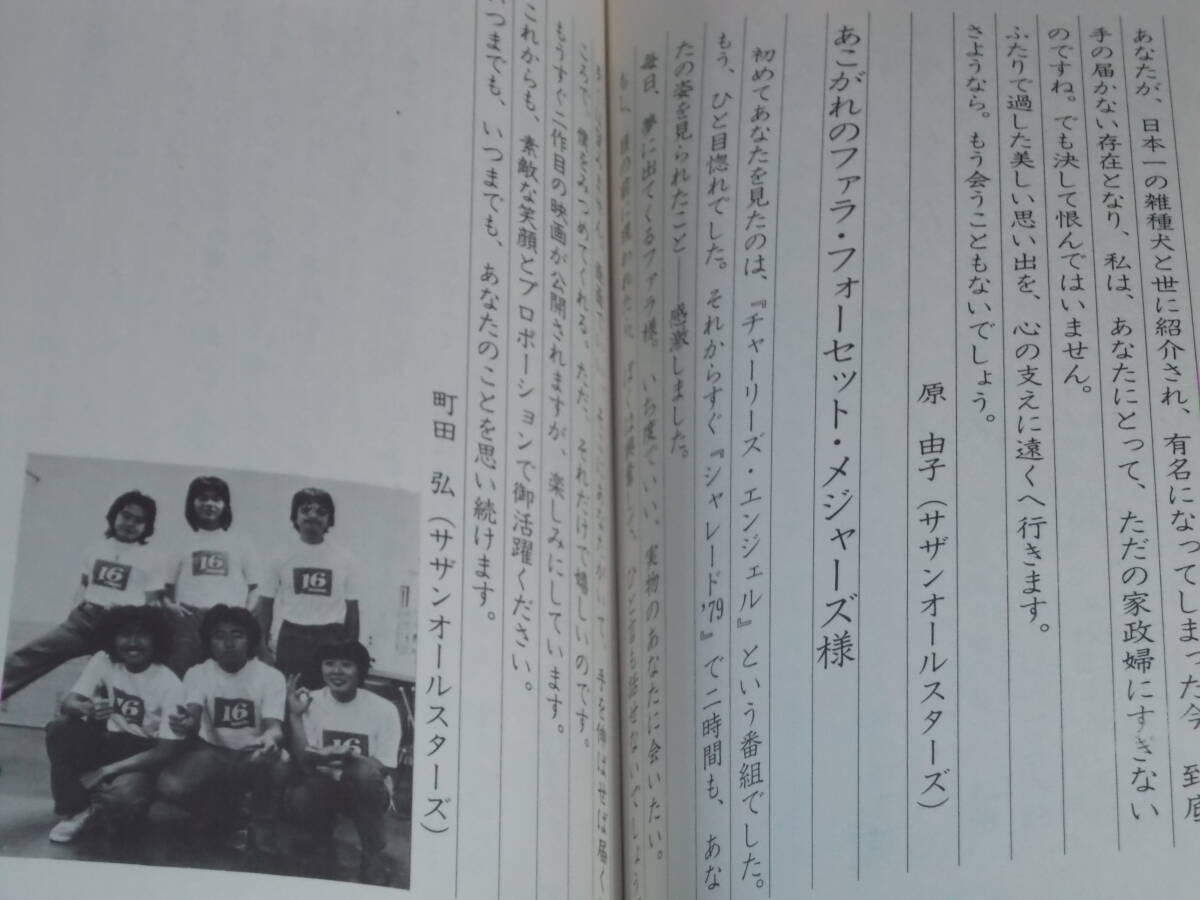 あなたが、日本一の雑種犬と世に紹介され、有名になってしまった今、到底
手の届かない存在となり、私は、あなたにとって、ただの家政婦にすぎない
のですね。でも決して恨んではいません。
ふたりで過した美しい思い出を、心の支えに遠くへ行きます。
さようなら。もう会うこともないでしょう。
原 由子（サザンオールスターズ）
あこがれのファラ・フォーセット・メジャーズ様
初めてあなたを見たのは、『チャーリーズ・エンジェル』という番組でした。
もう、ひと目惚れでした。それからすぐ『シャレード'79』で二時間も、あな
たの姿を見られたこと 感激しました。
毎日、夢に出てくるファラ様。いち度でいい。実物のあなたに会いたい。
ひと言も話せないでしょう
そこにあなたがいて、手を伸ばせば届く
ころで、僕をみつめてくれる。ただ、それだけで嬉しいのです。
もうすぐ二作目の映画が公開されますが、楽しみにしています。
これからも、素敵な笑顔とプロポーションで御活躍ください。
いつまでも、いつまでも、あなたのことを思い続けます。
町田 弘（サザンオールスターズ）
16
16
16
16
16
16